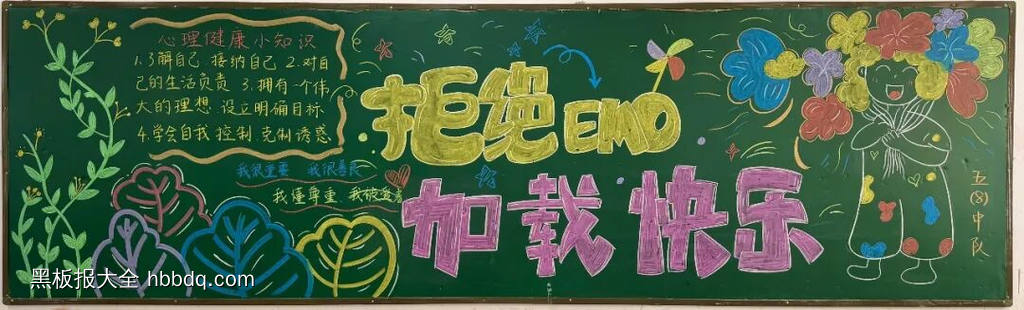 心理健康小知识
1.了解自己.接纳自己 2.对自
己的生活负责 3.拥有一个伟
大的理想.设立明确目标
4.学会自我控制 克制诱惑
我很重要 我很善良
我懂尊重 我被爱着
拒绝EMO
加载快乐
五(8)中队
黑板报大全 hbbdq.com